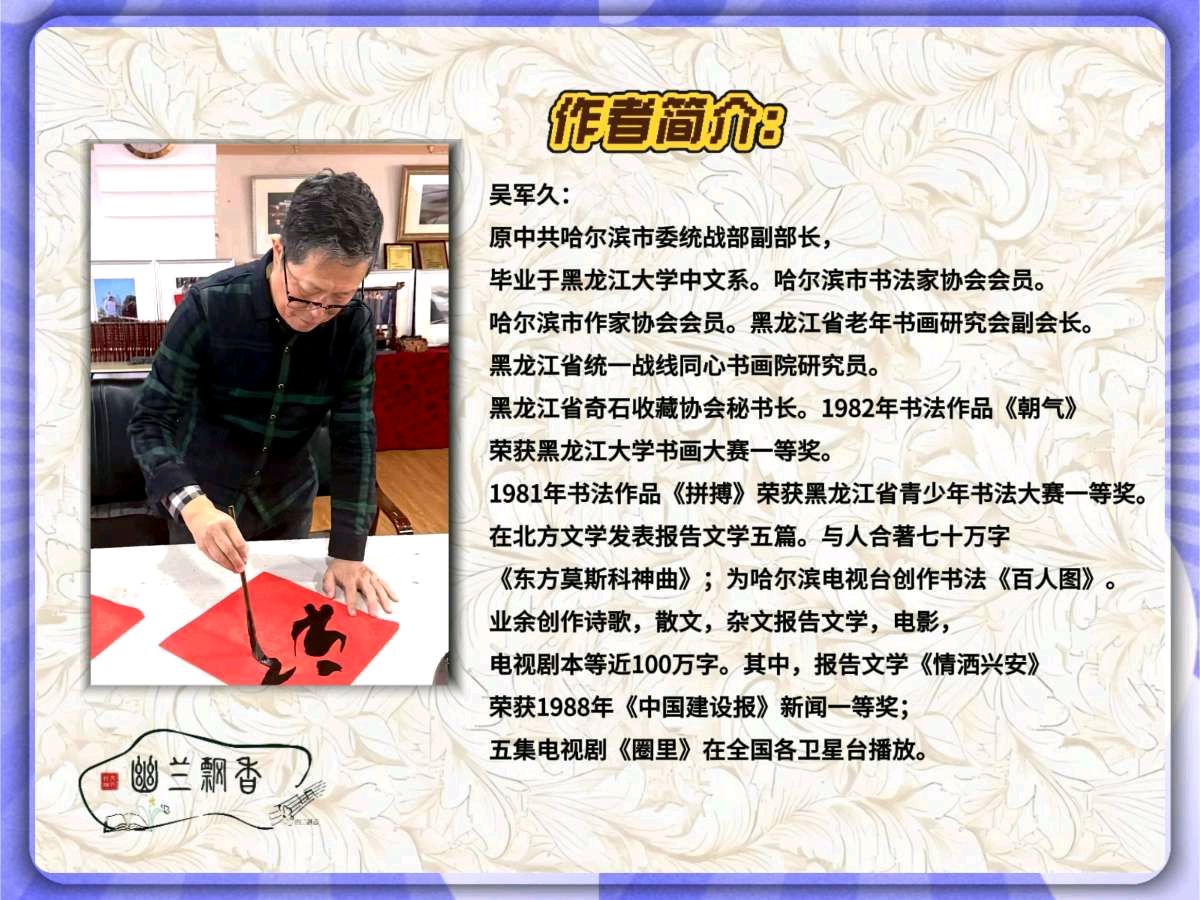 作者简介:
吴军久:
原中共哈尔滨市委统战部副部长，
毕业于黑龙江大学中文系。哈尔滨市书法家协会会员。
哈尔滨市作家协会会员。黑龙江省老年书画研究会副会长。
黑龙江省统一战线同心书画院研究员。
黑龙江省奇石收藏协会秘书长。1982年书法作品《朝气》
荣获黑龙江大学书画大赛一等奖。
1981年书法作品《拼搏》荣获黑龙江省青少年书法大赛一等奖。
在北方文学发表报告文学五篇。与人合著七十万字
《东方莫斯科神曲》；为哈尔滨电视台创作书法《百人图》。
业余创作诗歌，散文，杂文报告文学，电影，
电视剧本等近100万字。其中，报告文学《情洒兴安》
荣获1988年《中国建设报》新闻一等奖；
五集电视剧《圈里》在全国各卫星台播放。
幽兰飘香